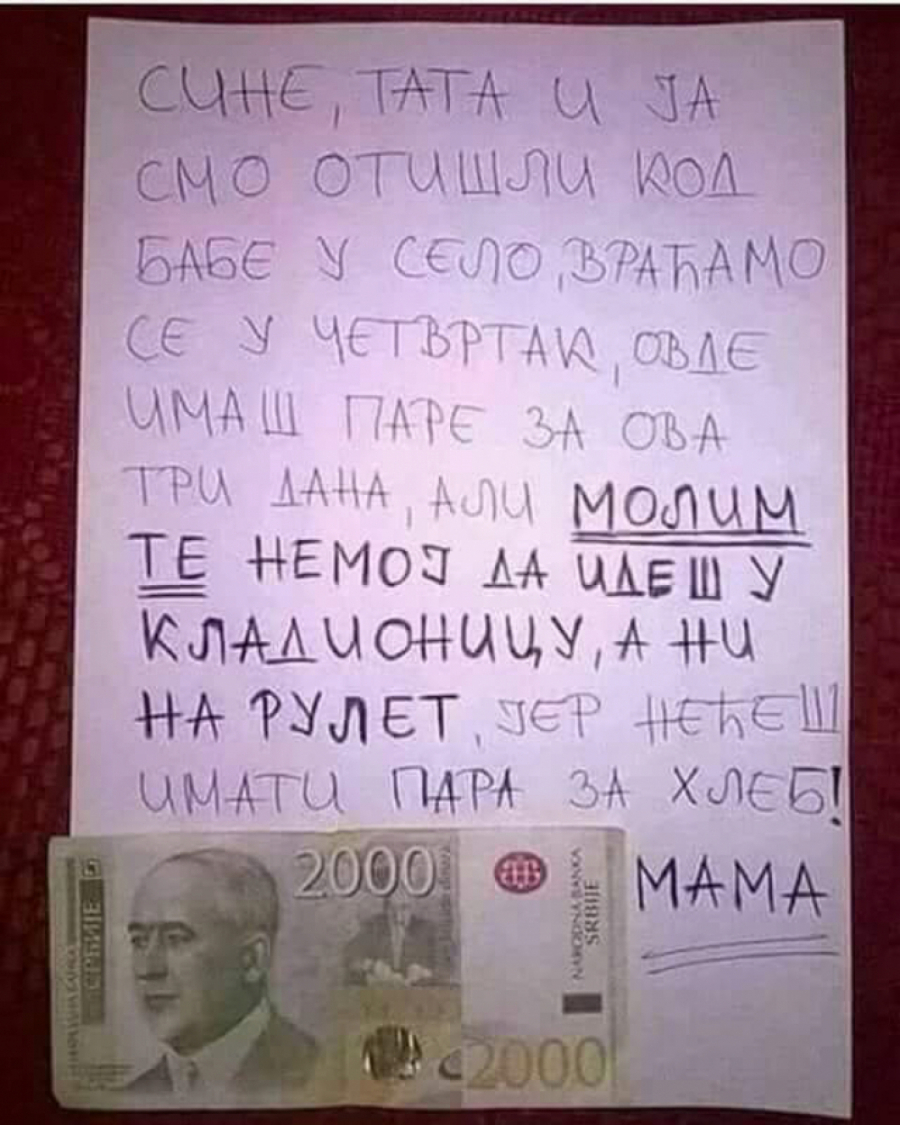 СИНЕ, ТАТА И ЈА
СМО ОТИШЛИ КОД
БАБЕ У СЕЛО, ВРАЋАМО
СЕ У ЧЕТВРТАК, ОВДЕ
ИМАШ ПАРЕ ЗА ОВА
ТРИ ДАНА, АЛИ МОЛИМ
ТЕ НЕМОЈ ДА ИДЕШ У
КЛАДИОНИЦУ, А НИ
НА РУЛЕТ, ЈЕР НЕЋЕШ
ИМАТИ ПАРА ЗА ХЛЕБ!
МАМА
2000
СРБИЈЕ
NARODNA BANKA
SRBIJE
2000